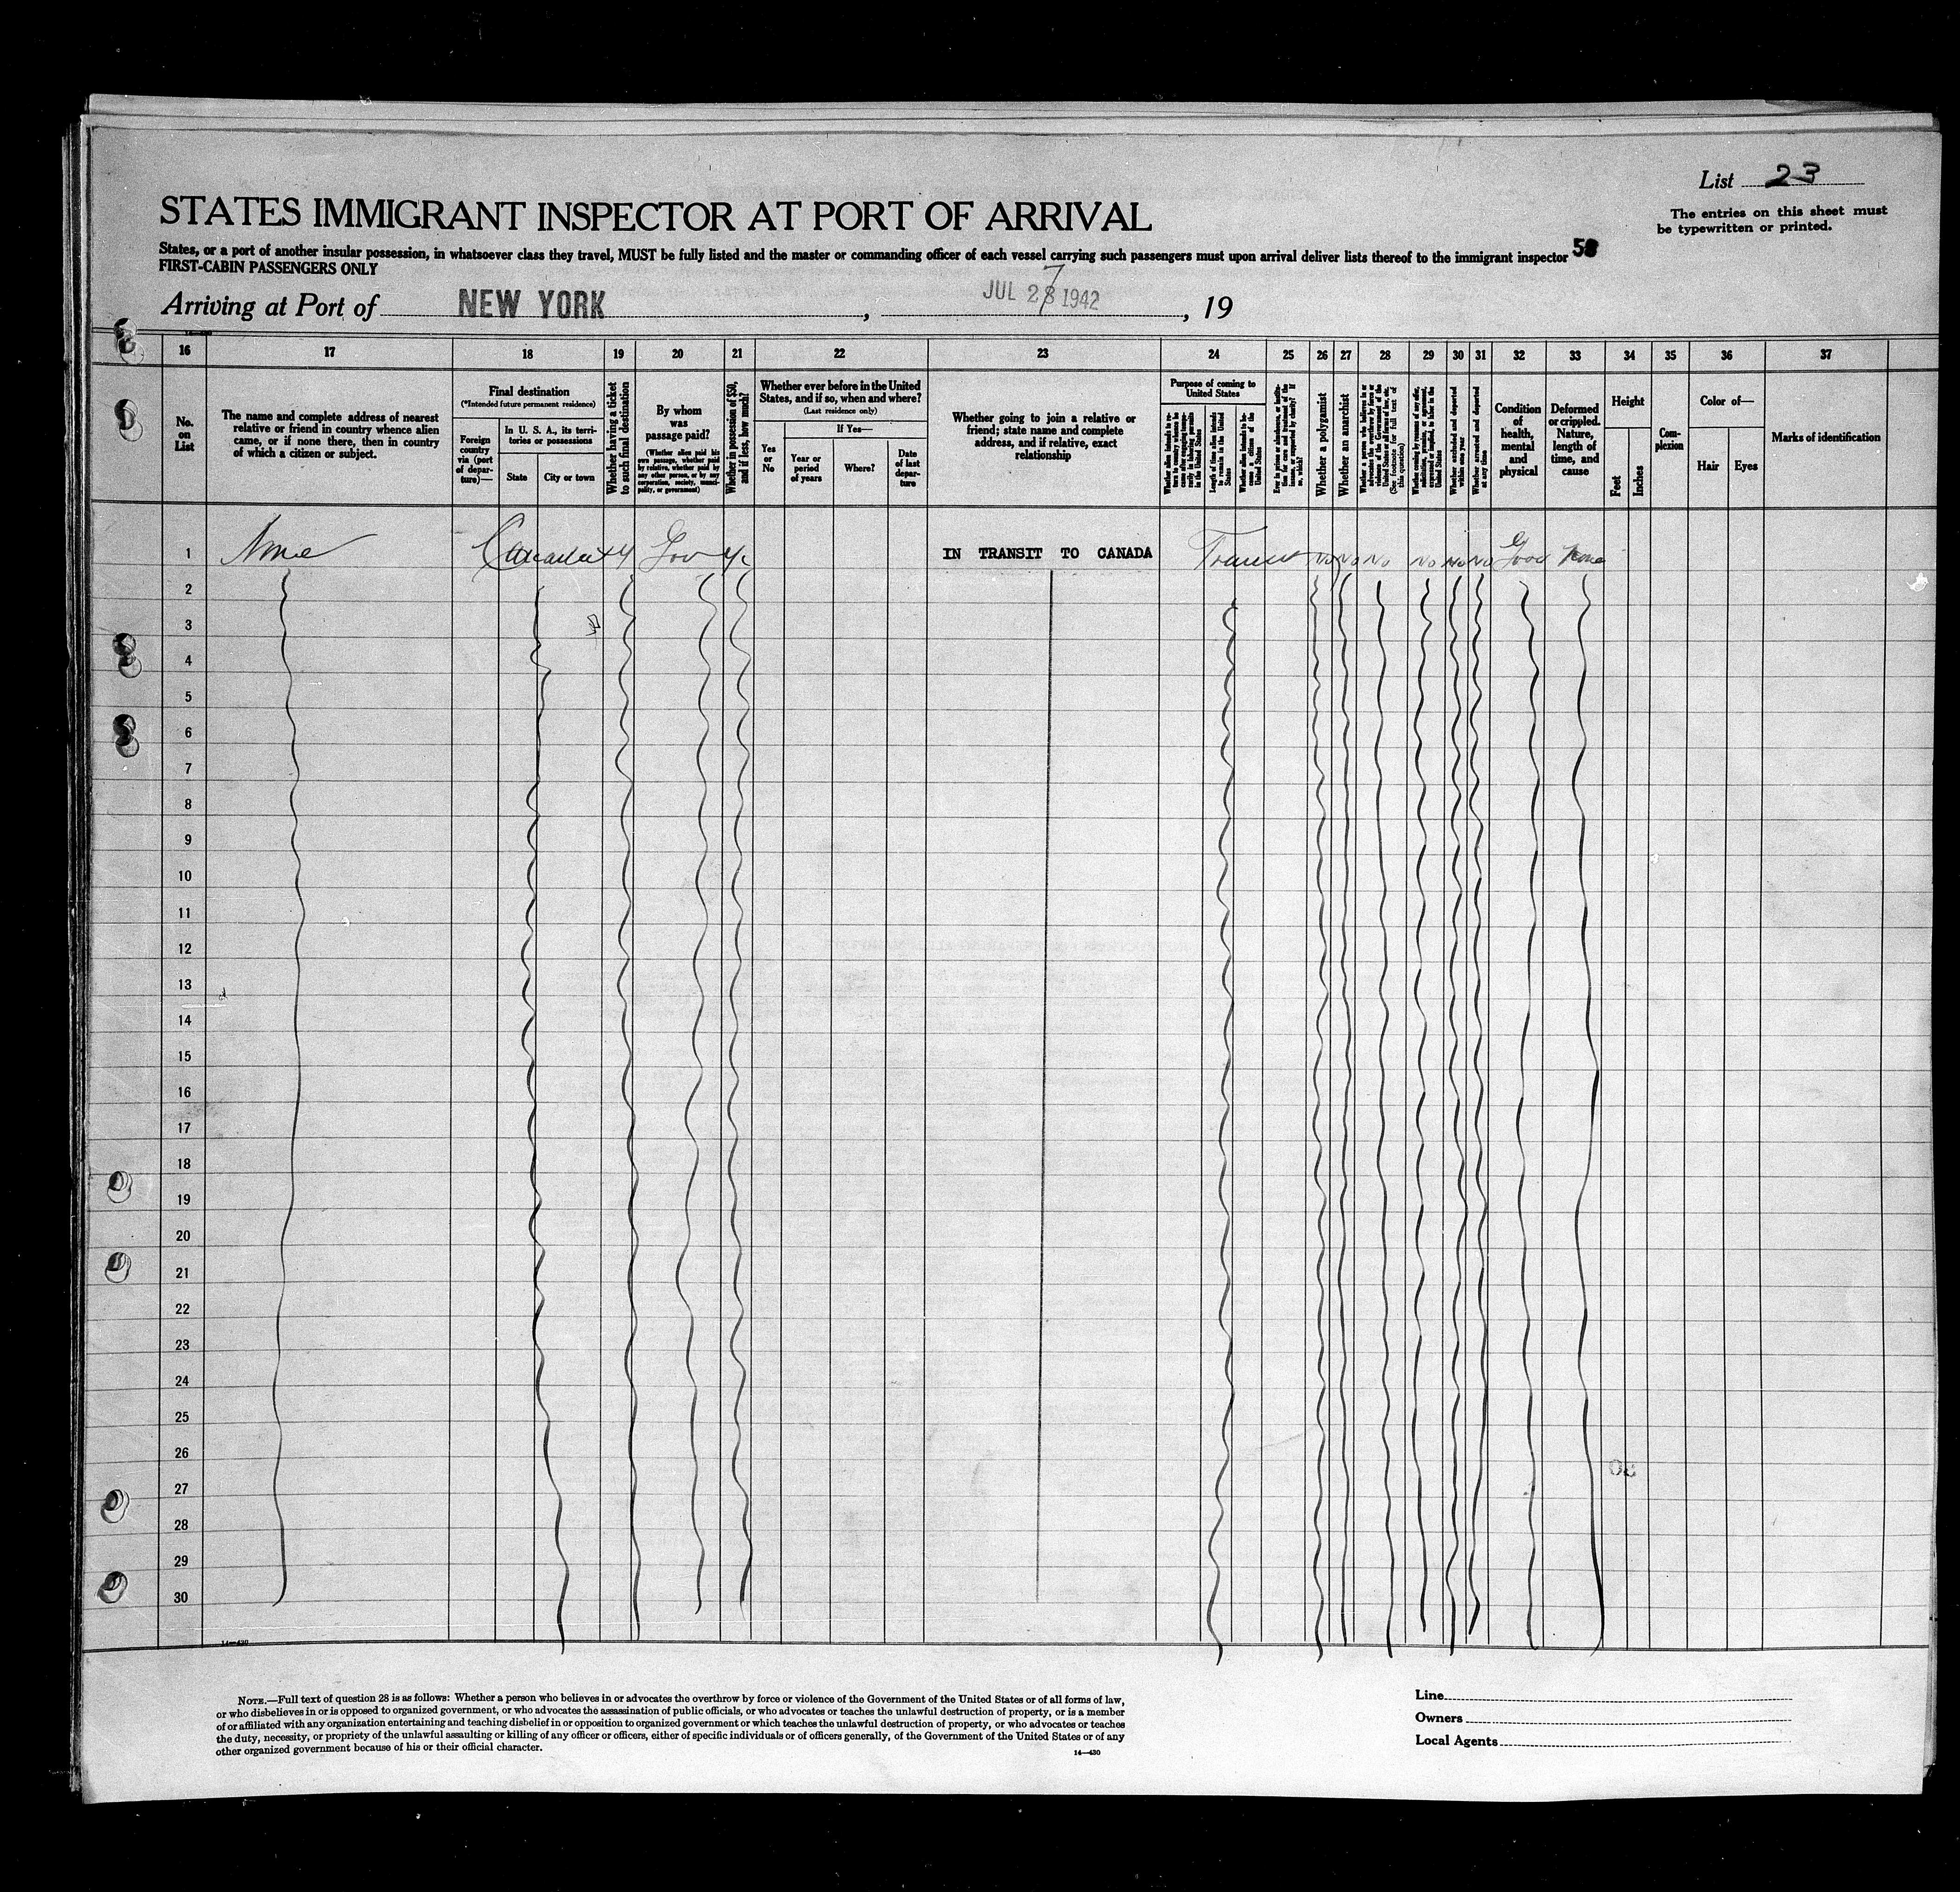 List 23
The entries on this sheet must
be typewritten or printed.
STATES IMMIGRANT INSPECTOR AT PORT OF ARRIVAL
States, or a port of another insular possession, in whatsoever class they travel, MUST be fully listed and the master or commanding officer of each vessel carrying such passengers must upon arrival deliver lists thereof to the immigrant inspector
FIRST-CABIN PASSENGERS ONLY
Arriving at Port of NEW YORK, JUL 27 1942, 19
16 17 18 19 20 21 22 23 24 25 26 27 28 29 30 31 32 33 34 35 36 37
No.
on
List
The name and complete address of nearest
relative or friend in country whence alien
came, or if none there, then in country
of which a citizen or subject.
Final destination
(*Intended future permanent residence)
Foreign
country
via (port
of depar-
ture)—
In U. S. A., its terri-
tories or possessions
State
City or town
Whether having a ticket
to such final destination
By whom
was
passage paid?
(Whether alien paid his
own passage, whether paid
by relative, whether paid by
any other person, or by any
corporation, society, munici-
pality, or government)
Whether in possession of $50,
and if less, how much?
Whether ever before in the United
States, and if so, when and where?
(Last residence only)
Yes
or
No
If Yes—
Year or
period
of years
Where?
Date
of last
depar-
ture
Whether going to join a relative or
friend; state name and complete
address, and if relative, exact
relationship
Purpose of coming to
United States
Length of time alien intends
to remain in the United
States
Whether alien intends to be-
come a citizen of the
United States
Whether a polygamist
Whether an anarchist
(See footnote for full text of
this question)
Whether excluded and deported
within one year
Whether arrested and deported
at any time
Condition
of
health,
mental
and
physical
Deformed
or crippled.
Nature,
length of
time, and
cause
Height
Feet
Inches
Com-
plexion
Color of—
Hair
Eyes
Marks of identification
1 None Canada Gov IN TRANSIT TO CANADA Transit No No No No No No Good None
2
3
4
5
6
7
8
9
10
11
12
13
14
15
16
17
18
19
20
21
22
23
24
25
26
27
28
29
30
14—430
NOTE.—Full text of question 28 is as follows: Whether a person who believes in or advocates the overthrow by force or violence of the Government of the United States or of all forms of law,
or who disbelieves in or is opposed to organized government, or who advocates the assassination of public officials, or who advocates or teaches the unlawful destruction of property, or is a member
of or affiliated with any organization entertaining and teaching disbelief in or opposition to organized government or which teaches the unlawful destruction of property, or who advocates or teaches
the duty, necessity, or propriety of the unlawful assaulting or killing of any officer or officers, either of specific individuals or of officers generally, of the Government of the United States or of any
other organized government because of his or their official character.
14—430
Line
Owners
Local Agents